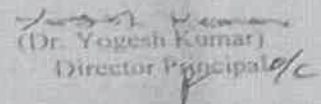 (Dr. Yogesh Kumar)
Director Principal o/c